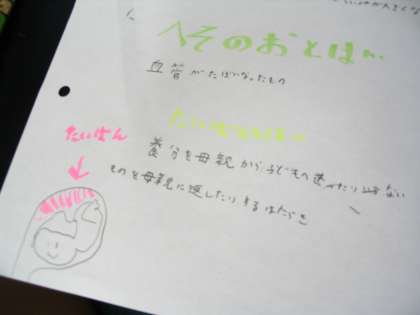 へそのおとは…
血管がたばになったもの
たいばんとは…
たいばん
養分を母親から子どもへ送ったり
ものを母親に返したりするはたらき